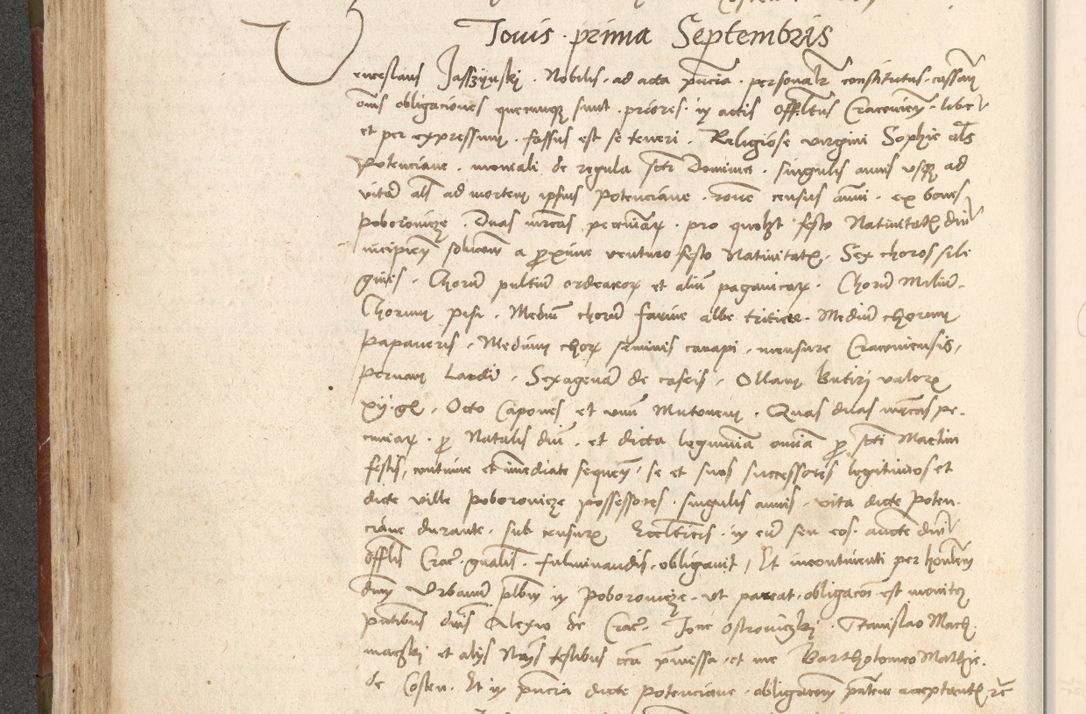 Jovis prima Septembris
Venceslaus Jasszynskj . Nobilis . ad acta pñcia . personalr constitutus . cassan
oms obligaciones quecunqz sunt . priores . in actis Offiltus Cracovien . liber
et per expressum . fassus est se teneri . Religiose virgini Sophie als
Potenciane . moniali de regula scti Dominici . singulis annis usqz ad
vitā als ad mortem ipsius Potenciane . rone census annui . ex bonis
Poborovicze . Duas mrcas pecuniar . pro quolzt festo Nativitatis diu
incipien solucem a proxime venturo festo Nativitatis . Sex choros sili
ginis . Chorū pultiū ordeacor et aliū paganicar . Chorū Milii .
Chorum pisi . Mediū chorū farine albe tritice . Mediū chorum
papaveris . Medium chor seminis canapi . mensure Cracoviensis .
pernam Lardi . Sexagenā de caseis . Ollam butiri valoris
xij gr . Octo Capones et unū Mutonem . Quas duas mrcas pe
cuniar . pro Natalis diu . et dicta legumina omia pro scti Martini
festis . continue et immediate sequen . se et suos successores legitimos et
dicte ville Poborovicze possessores . singulis annis . vita dicte Poten
ciane durante . sub censuris Eccleticis . in eū seu eos . aucte dni
offlis Crac gnalis . fulminandis . obligavit / Et incontinenti per honlem
dnm Urbanū plbm in Poborovicze . ut pareat . obligacoi est monitus
pntibus dnis Alexio de Crac . Joe Ostrowiczkj . Stanislao Mach
maczkj et alijs Nris testibus circa pmissa . et me Bartholomeo Mathie .
de Costen . Et in pñcia dicte Potenciane . obligacoem pntem acceptantis rc